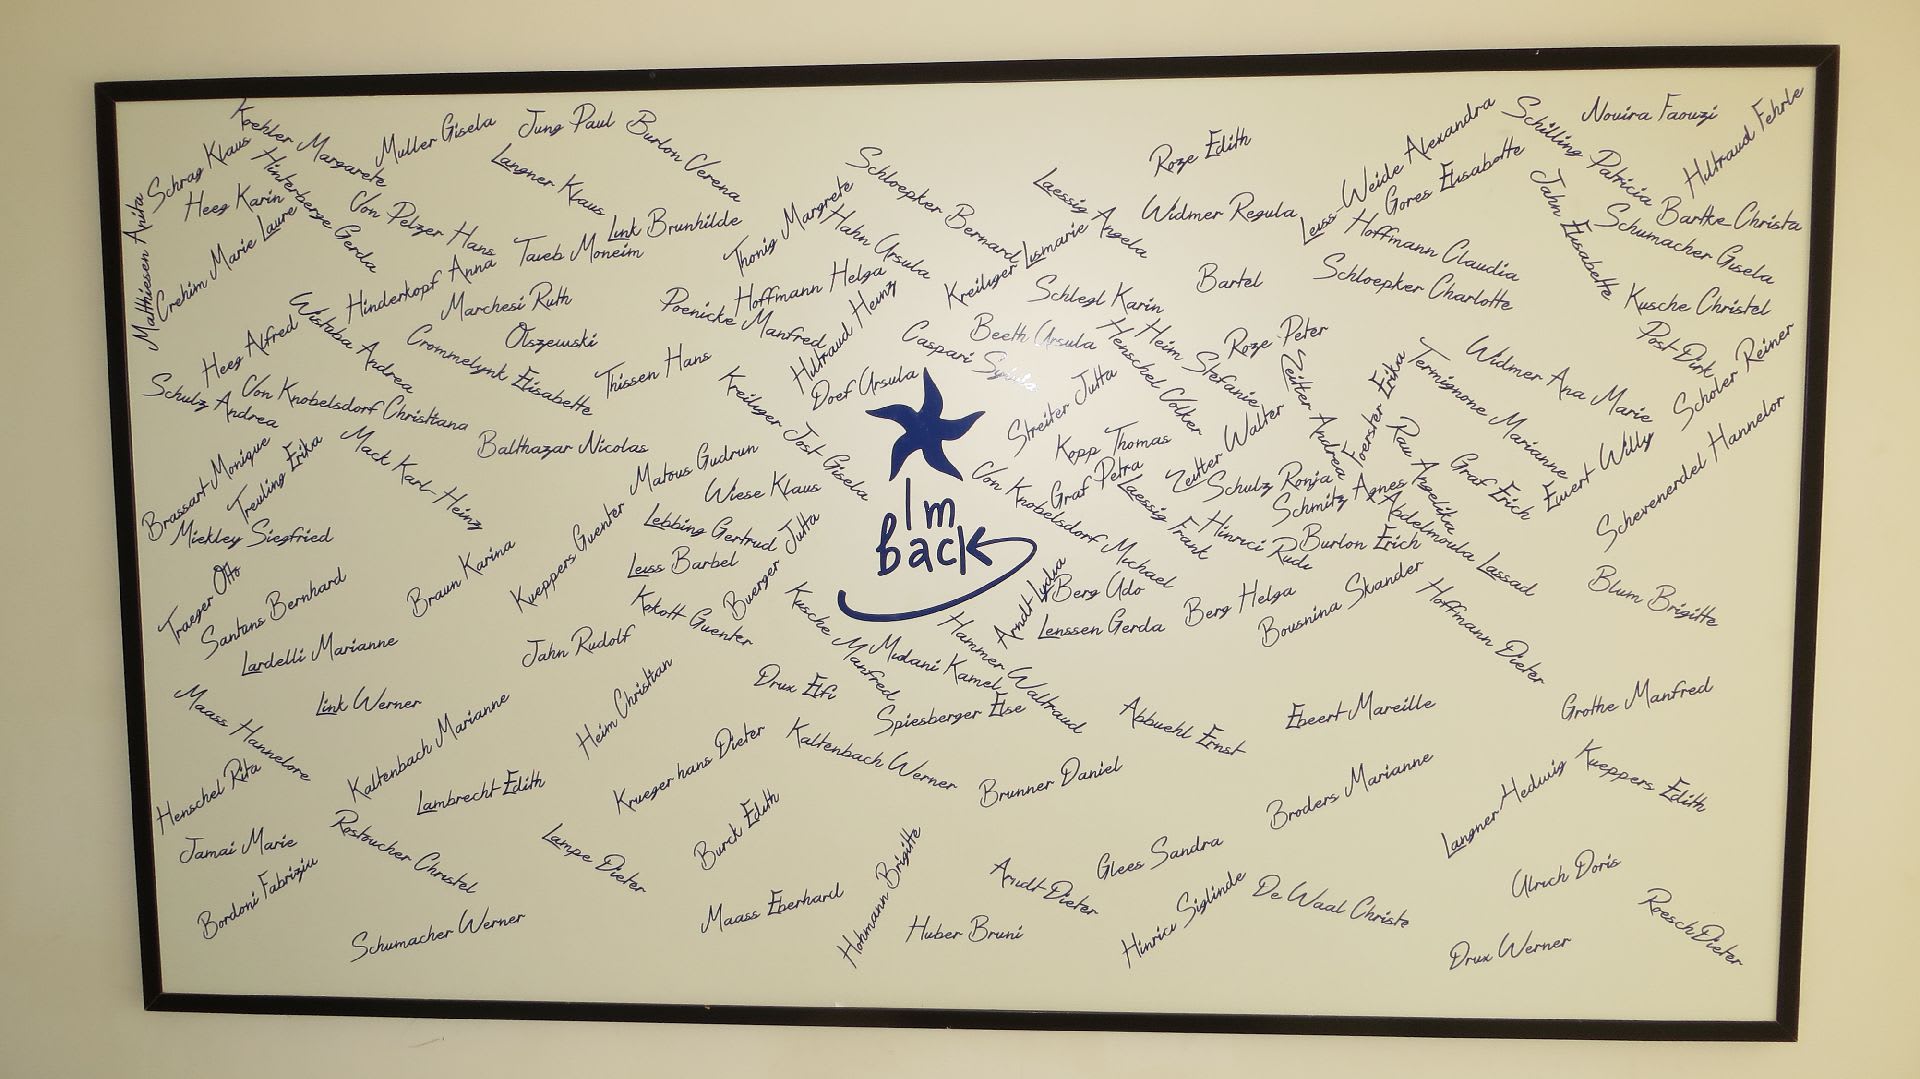 Koehler Margarete
Muller Gisela
Jung Paul
Burlon Verena
Schrag Klaus
Hinterberge Gerda
Langner Klaus
Heeg Karin
Von Pelzer Hans
Link Brunhilde
Matthiesen Anita
Crehim Marie Laure
Taieb Moneim
Hinderkopf Anna
Marchesi Ruth
Olszewski
Heeg Alfred
Wistuba Andrea
Crommelynk Elisabette
Thissen Hans
Schulz Andrea
Von Knobelsdorf Christiana
Balthazar Nicolas
Brassart Monique
Treuling Erika
Mack Karl-Heinz
Mickley Siegfried
Thonig Margrete
Schloepker Bernard
Hahn Ursula
Hoffmann Helga
Poenicke Manfred
Hiltraud Heinz
Doef Ursula
Kreiliger Jost Gisela
Kreiliger Lismarie
Laessig Angela
Roze Edith
Widmer Regula
Leiss-Weide Alexandra
Gores Elisabette
Schilling Patricia
Nouira Faouzi
Hiltraud Fehrle
Bartke Christa
Jahn Elisabette
Schumacher Gisela
Hoffmann Claudia
Schloepker Charlotte
Bartel
Schlegl Karin
Kusche Christel
Post Dirk
Beeth Ursula
Caspari Sylvia
Henschel Volker
Heim Stefanie
Roze Peter
Seitter Andrea
Foerster Erika
Termignone Marianne
Widmer Ana Marie
Scholer Reiner
Streiter Jutta
Kopp Thomas
Graf Petra
Zeitter Walter
Rau Angelika
Graf Erich
Ewert Willy
Schevenerdel Hannelor
Von Knobelsdorf Michael
Laessig Frank
Schulz Ronja
Schmitz Agnes
Abdelmoula Lassad
Hinrici Rudi
Burlon Erich
I'm
back
Matous Gudrun
Wiese Klaus
Lebbing Gertrud
Kueppers Guenter
Leiss Barbel
Buerger Jutta
Braun Karina
Traeger Otto
Santans Bernhard
Lardelli Marianne
Kokott Guenter
Jahn Rudolf
Kusche Manfred
Midani Kamel
Hammer Waltraud
Arndt Lydia
Berg Udo
Lenssen Gerda
Berg Helga
Bousnina Skander
Hoffmann Dieter
Blum Brigitte
Maass Hannelore
Link Werner
Kaltenbach Marianne
Heim Christian
Drux Elfi
Spiesberger Else
Abbuehl Ernst
Ebeert Mareille
Grothe Manfred
Henschel Rita
Lambrecht Edith
Krueger hans Dieter
Kaltenbach Werner
Brunner Daniel
Broders Marianne
Langner Hedwig
Kueppers Edith
Jamai Marie
Rostoucher Christel
Lampe Dieter
Burck Edith
Bordoni Fabriziu
Schumacher Werner
Maass Eberhard
Hohmann Brigitte
Huber Bruni
Arndt Dieter
Glees Sandra
Hinrici Siglinde
De Waal Christe
Ulrich Doris
Drux Werner
Reesch Dieter